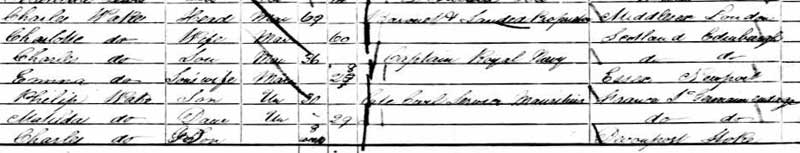 Charles Wake Head Mar 69 Baronet & Landed Proprietor Middlesex London
Charlotte do Wife Mar 60 Scotland Edinburgh
Charles do Son Mar 36 Captain Royal Navy do do
Emma do Son's wife Mar Essex Newport
Philip Wake Son Un 30 Late Civil Service Mauritius France St
Matilda do Daur Un 29 do do
Charles do G Son Devonport Stoke